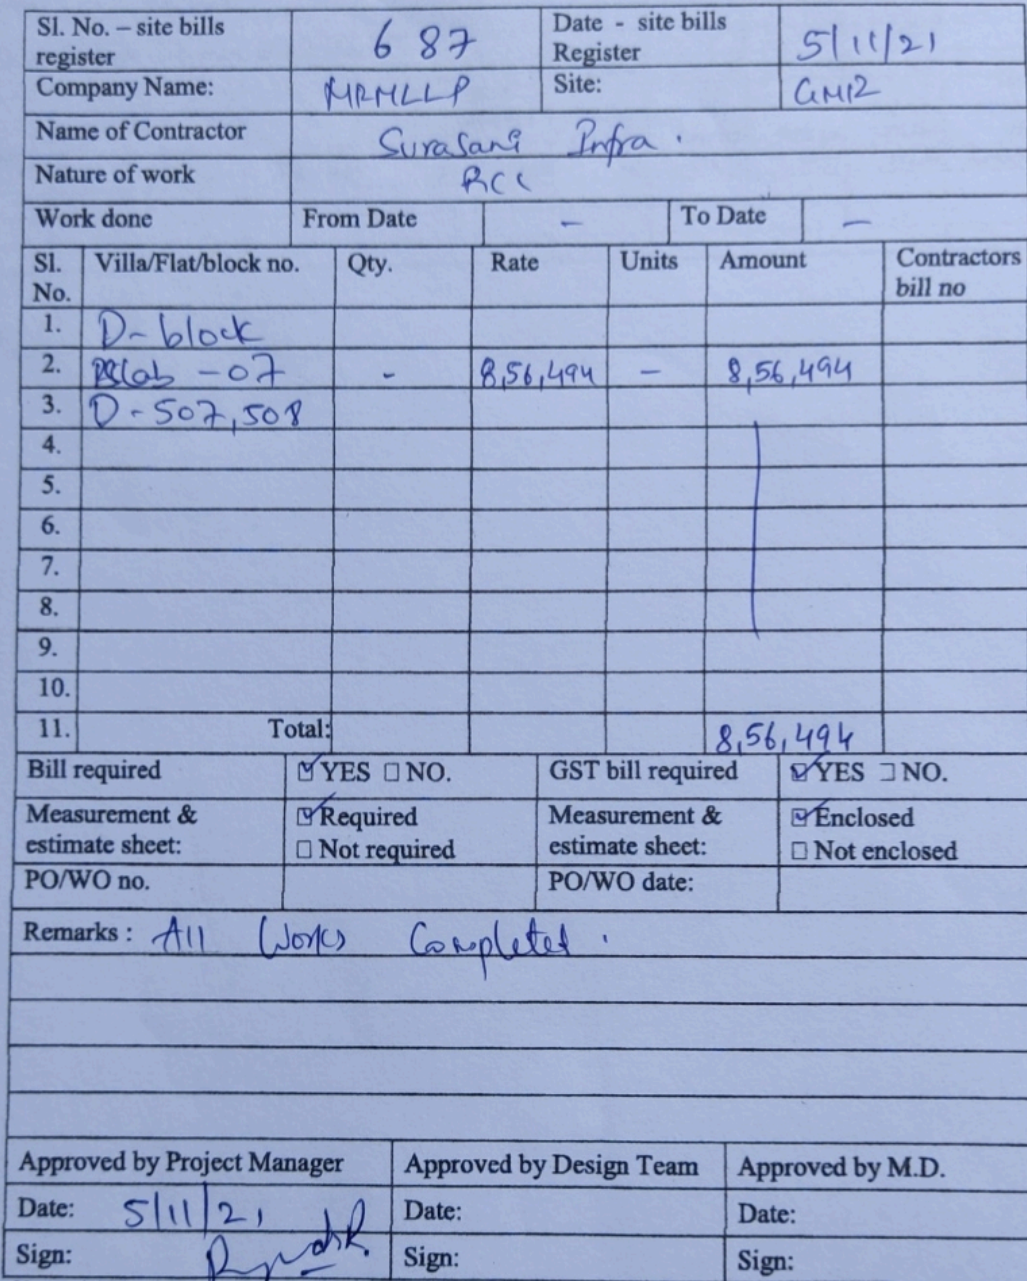 Sl. No. – site bills register 687 Date - site bills Register 5/11/21
Company Name: MRMLLP Site: GMR
Name of Contractor Surasani Infra.
Nature of work RCC
Work done From Date – To Date –
Sl. No. Villa/Flat/block no. Qty. Rate Units Amount Contractors bill no
1. D-block
2. Slab -07 - 8,56,494 – 8,56,494
3. D-507,508
4.
5.
6.
7.
8.
9.
10.
11. Total: 8,56,494
Bill required ☑ YES ☐ NO. GST bill required ☑ YES ☐ NO.
Measurement & estimate sheet: ☑ Required ☐ Not required Measurement & estimate sheet: ☑ Enclosed ☐ Not enclosed
PO/WO no. PO/WO date:
Remarks : All Works Completed.
Approved by Project Manager Approved by Design Team Approved by M.D.
Date: 5/11/21 Date: Date:
Sign: Sign: Sign: